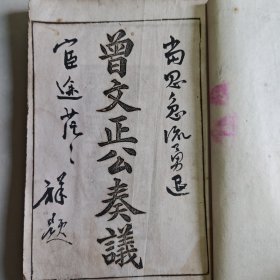 當思急流勇退
曾文正公奏議
宦途茫々
祥題